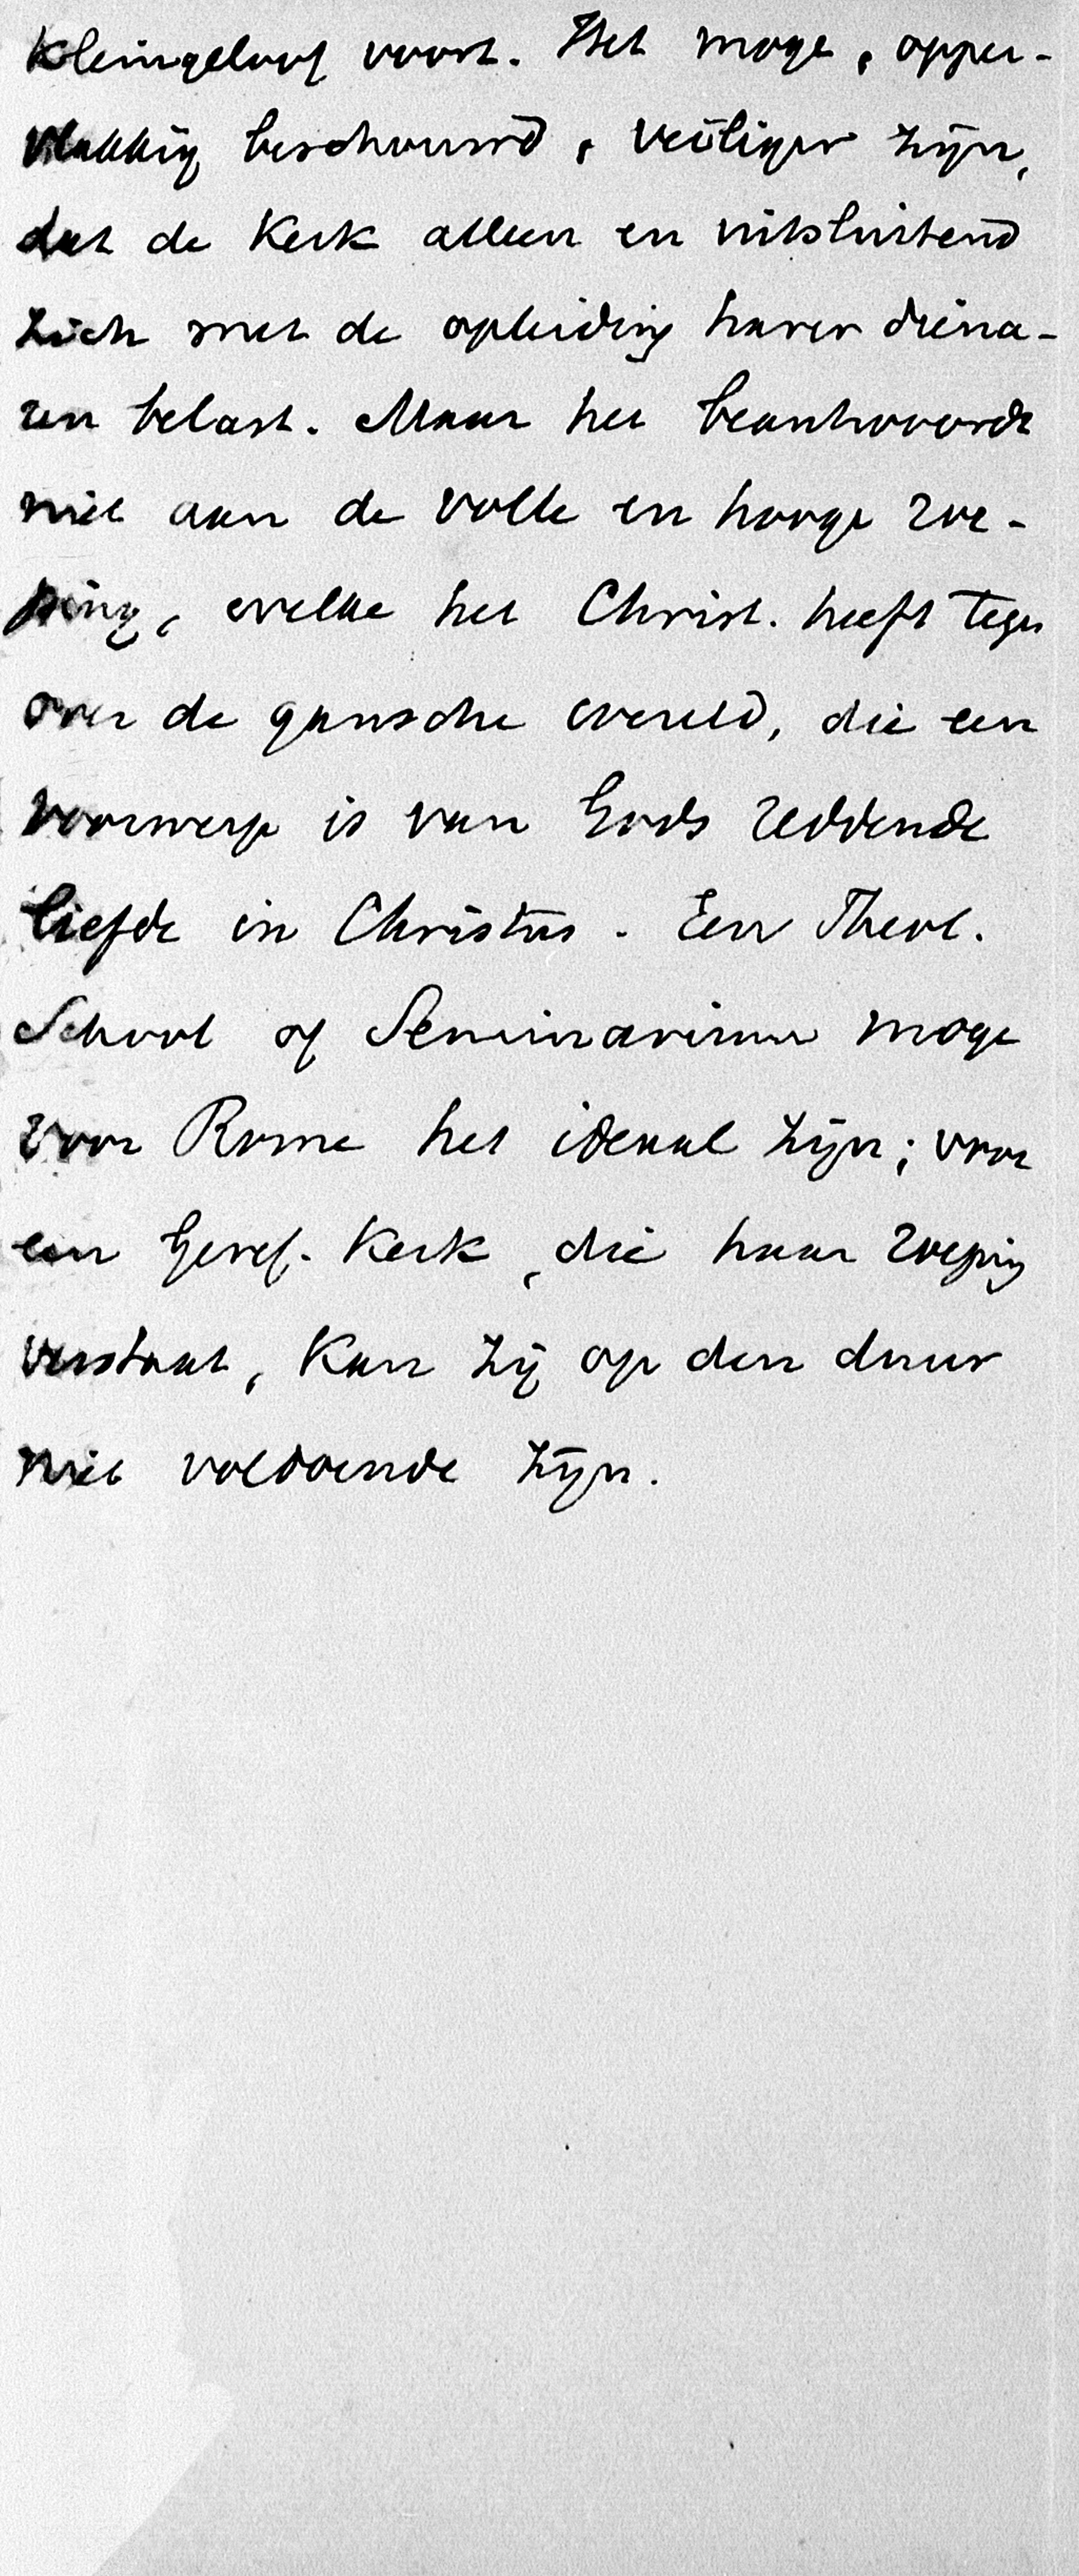 kleingeloof voort. Het moge, opper-
vlakkig beschouwd, veiliger zijn,
dat de Kerk alleen en uitsluitend
zich met de opleiding harer diena-
ren belast. Maar het beantwoordt
niet aan de volle en hooge roe-
ping, welke het Christ. heeft tegen
over de gansche wereld, die een
voorwerp is van Gods reddende
liefde in Christus. Een Theol.
School of Seminarium moge
voor Rome het ideaal zijn; voor
een Geref. Kerk, die haar roeping
verstaat, kan zij op den duur
niet voldoende zijn.